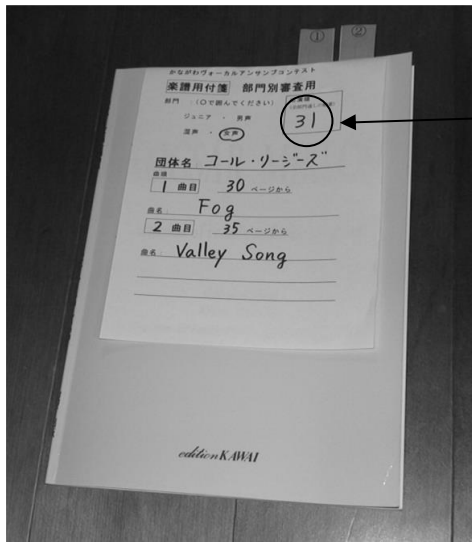 ① ②
かながわヴォーカルアンサンブルコンテスト
楽譜用付箋 部門別審査用
部門 :(○で囲んでください)
ジュニア ・ 男声
31
混声 ・ 女声
団体名 コール・リージーズ
曲順
1 曲目 30 ページから
曲名 Fog
2 曲目 35 ページから
曲名: Valley Song
edition KAWAI